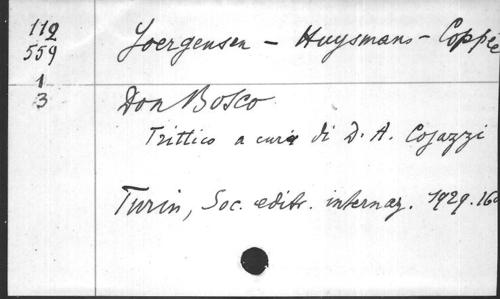 112
559
1
3
Joergensen - Huysmans - Coppée
Don Bosco
Trittico a cura di D. A. Cojazzi
Turin, Soc. editr. internaz. 1929. 16o